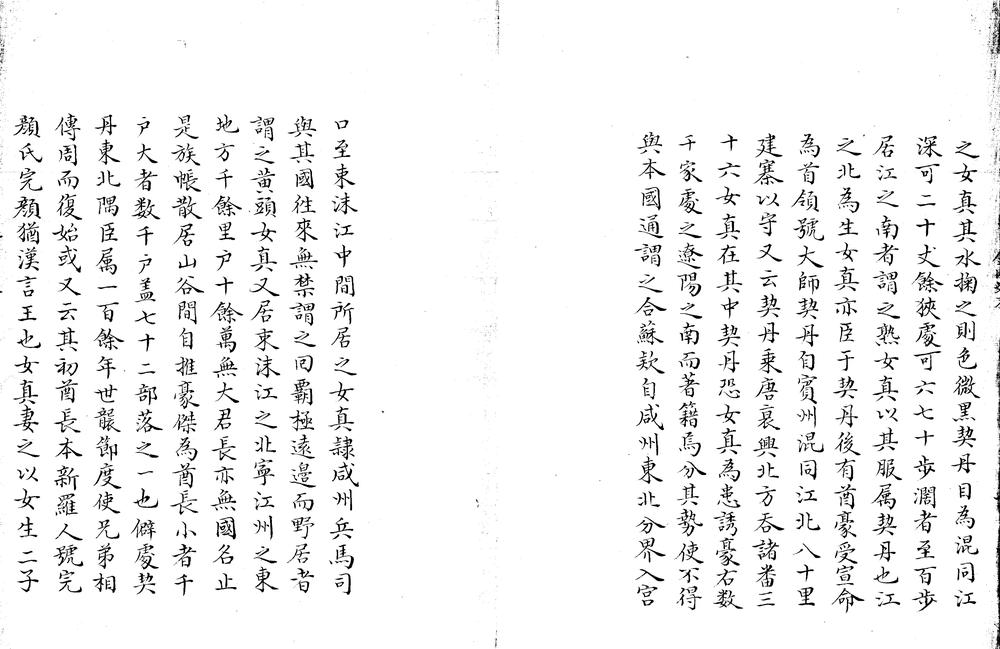 之女真其水掬之則色微黑契丹目為混同江
深可二十丈餘狹處可六七十步濶者至百步
居江之南者謂之熟女真以其服属契丹也江
之北為生女真亦臣于契丹後有酋豪受宣命
為首領號大師契丹自賓州混同江北八十里
建寨以守又云契丹乘唐衰興北方吞諸畨三
十六女真在其中契丹恐女真為患誘豪右数
千家處之遼陽之南而著籍焉分其勢使不得
與本國通謂之合蘇欵自咸州東北分界入宫
口至束沫江中間所居之女真隷咸州兵馬司
與其國往來無禁謂之囘霸極遠邉而野居者
謂之黄頭女真又居束沫江之北寧江州之東
地方千餘里户十餘萬無大君長亦無國名止
是族帳散居山谷間自推豪傑為酋長小者千
户大者数千户盖七十二部落之一也僻處契
丹東北隅臣属一百餘年世襲節度使兄弟相
傳周而復始或又云其初酋長本新羅人號完
顔氏完顔猶漢言王也女真妻之以女生二子